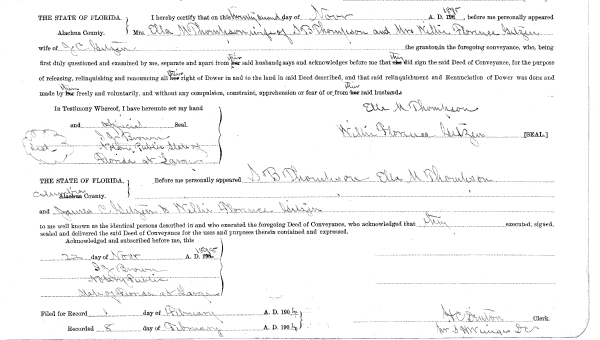 THE STATE OF FLORIDA, I hereby certify that on this twenty second day of Novr A. D. 1895 before me personally appeared
Alachua County. Mrs. Ella M Thompson wife of S B Thompson and Mrs Willie Florence Getzen
wife of J C Getzen the grantor in the foregoing conveyance, who, being
first duly questioned and examined by me, separate and apart from their said husbands, says and acknowledges before me that they did sign the said Deed of Conveyance, for the purpose
of releasing, relinquishing and renouncing all their right of Dower in and to the land in said Deed described, and that said relinquishment and Renunciation of Dower was done and
made by them freely and voluntarily, and without any compulsion, constraint, apprehension or fear of or from their said husbands.
In Testimony Whereof, I have hereunto set my hand Ella M Thompson
and official Seal. Willie Florence Getzen [SEAL.]
Brown
Seal Notary Public State of
Florida at Large
THE STATE OF FLORIDA, Before me personally appeared S B Thompson Ella M Thompson
Columbia Alachua County.
and James C Getzen & Willie Florence Getzen
to me well known as the identical persons described in and who executed the foregoing Deed of Conveyance, who acknowledged that they executed, signed,
sealed and delivered the said Deed of Conveyance for the uses and purposes therein contained and expressed.
Acknowledged and subscribed before me, this
22 day of Novr A. D. 1895
Brown
Notary Public
State of Florida at Large
Filed for Record 1 day of February A. D. 190 H C Denton Clerk.
Recorded 8 day of February A. D. 190 D C